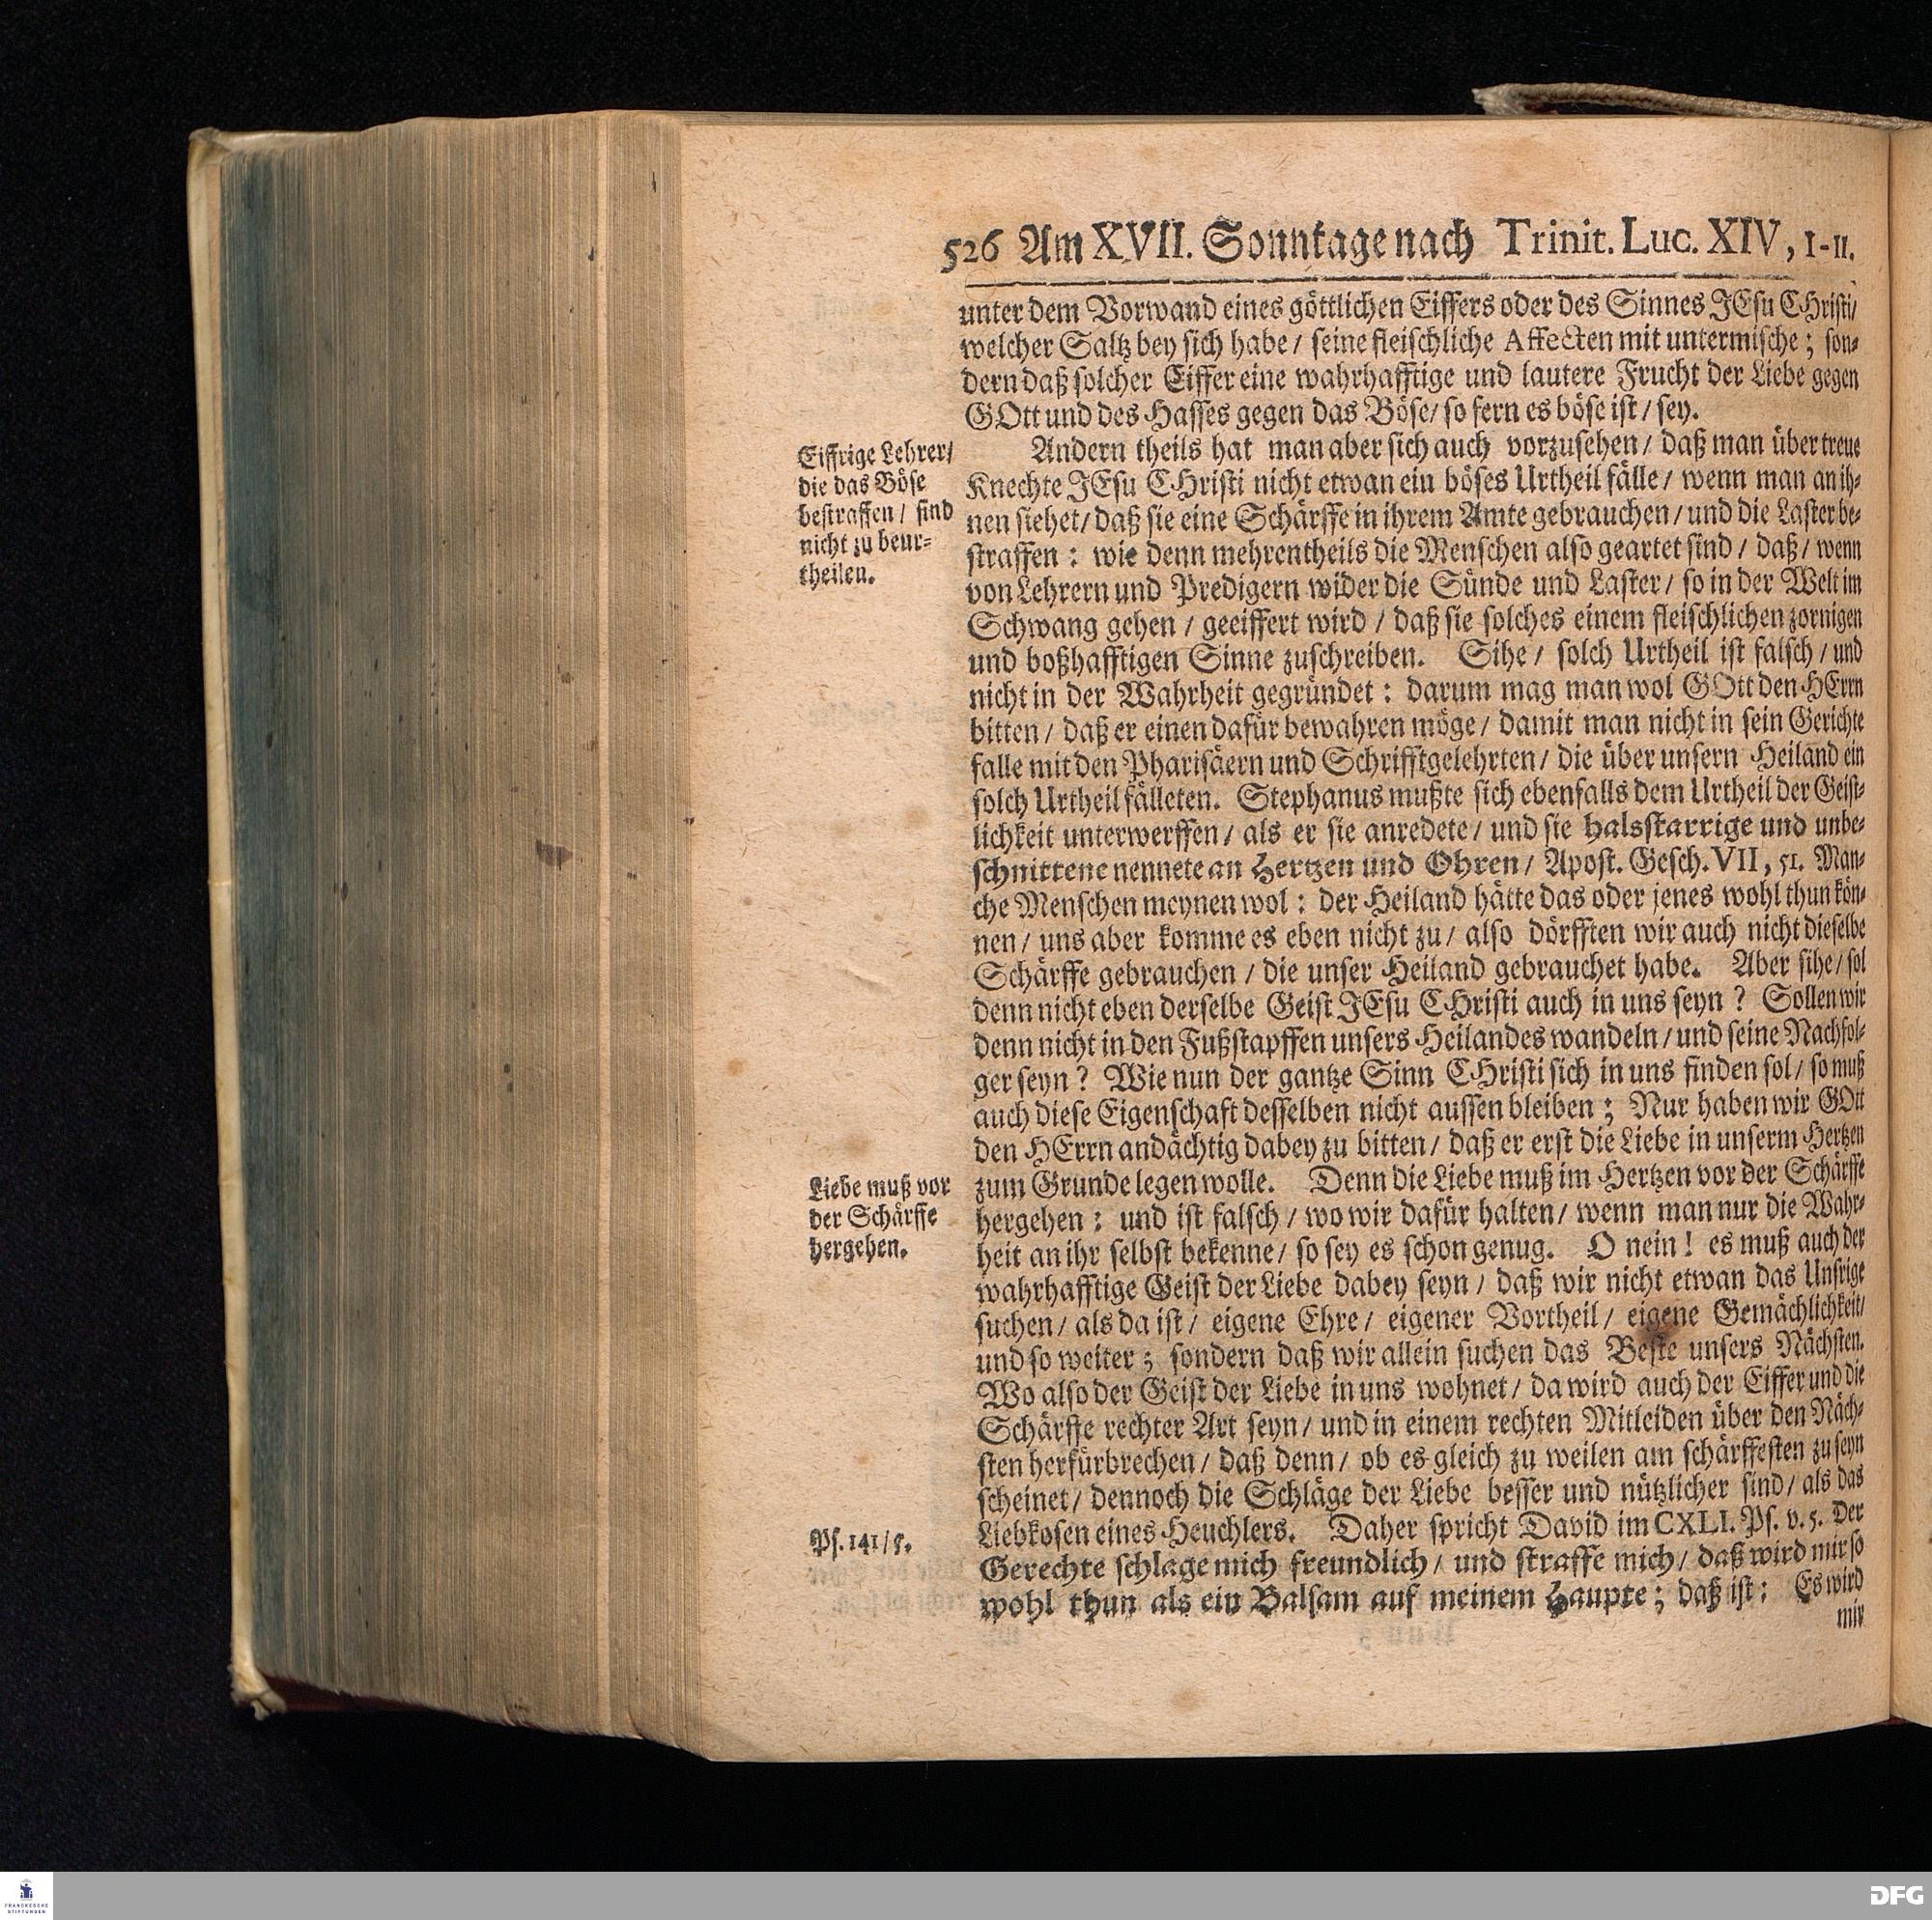 526 Am XVII. Sonntage nach Trinit. Luc. XIV, 1-11.
unter dem Vorwand eines göttlichen Eiffers oder des Sinnes JEsu CHristi/
welcher Saltz bey sich habe / seine fleischliche Affecten mit untermische; son-
dern daß solcher Eiffer eine wahrhafftige und lautere Frucht der Liebe gegen
GOtt und des Hasses gegen das Böse/ so fern es böse ist / sey.
Eiffrige Lehrer/
die das Böse
bestraffen / sind
nicht zu beur-
theilen.
Andern theils hat man aber sich auch vorzusehen / daß man über treue
Knechte JEsu CHristi nicht etwan ein böses Urtheil fälle / wenn man an ih-
nen siehet/ daß sie eine Schärffe in ihrem Amte gebrauchen / und die Laster be-
straffen : wie denn mehrentheils die Menschen also geartet sind / daß / wenn
von Lehrern und Predigern wider die Sünde und Laster / so in der Welt im
Schwang gehen / geeiffert wird / daß sie solches einem fleischlichen zornigen
und boßhafftigen Sinne zuschreiben. Sihe / solch Urtheil ist falsch / und
nicht in der Wahrheit gegründet : darum mag man wol GOtt den HErrn
bitten / daß er einen dafür bewahren möge / damit man nicht in sein Gerichte
falle mit den Pharisäern und Schrifftgelehrten / die über unsern Heiland ein
solch Urtheil fälleten. Stephanus mußte sich ebenfalls dem Urtheil der Geist-
lichkeit unterwerffen / als er sie anredete / und sie halsstarrige und unbe-
schnittene nennete an Hertzen und Ohren / Apost. Gesch. VII, 51. Man-
che Menschen meynen wol : der Heiland hätte das oder jenes wohl thun kön-
nen / uns aber komme es eben nicht zu / also dörfften wir auch nicht dieselbe
Schärffe gebrauchen / die unser Heiland gebrauchet habe. Aber sihe / sol
denn nicht eben derselbe Geist JEsu CHristi auch in uns seyn ? Sollen wir
denn nicht in den Fußstapffen unsers Heilandes wandeln / und seine Nachfol-
ger seyn ? Wie nun der gantze Sinn CHristi sich in uns finden sol / so muß
auch diese Eigenschaft desselben nicht aussen bleiben ; Nur haben wir GOtt
den HErrn andächtig dabey zu bitten / daß er erst die Liebe in unserm Hertzen
Liebe muß vor
der Schärffe
hergehen.
zum Grunde legen wolle. Denn die Liebe muß im Hertzen vor der Schärffe
hergehen : und ist falsch / wo wir dafür halten / wenn man nur die Wahr-
heit an ihr selbst bekenne / so sey es schon genug. O nein ! es muß auch der
wahrhafftige Geist der Liebe dabey seyn / daß wir nicht etwan das Unsrige
suchen / als da ist / eigene Ehre / eigener Vortheil / eigene Gemächlichkeit/
und so weiter ; sondern daß wir allein suchen das Beste unsers Nächsten.
Wo also der Geist der Liebe in uns wohnet / da wird auch der Eiffer und die
Schärffe rechter Art seyn / und in einem rechten Mitleiden über den Näch-
sten herfürbrechen / daß denn / ob es gleich zu weilen am schärffesten zu seyn
scheinet / dennoch die Schläge der Liebe besser und nützlicher sind / als das
Ps. 141/5.
Liebkosen eines Heuchlers. Daher spricht David im CXLI. Ps. v. 5. Der
Gerechte schlage mich freundlich / und straffe mich / daß wird mir so
wohl thun als ein Balsam auf meinem Haupte ; daß ist : Es wird
mir
FRANCKESCHE
STIFTUNGEN
DFG